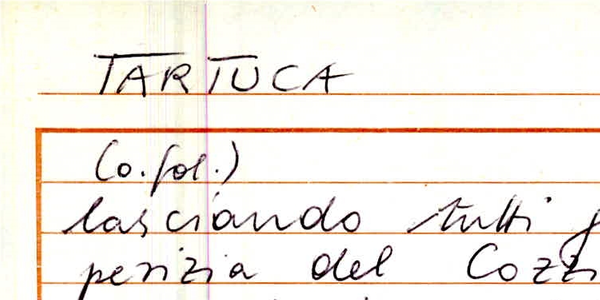 TARTUCA
(o. fol.)
lasciando tutti
perizia del Cozz